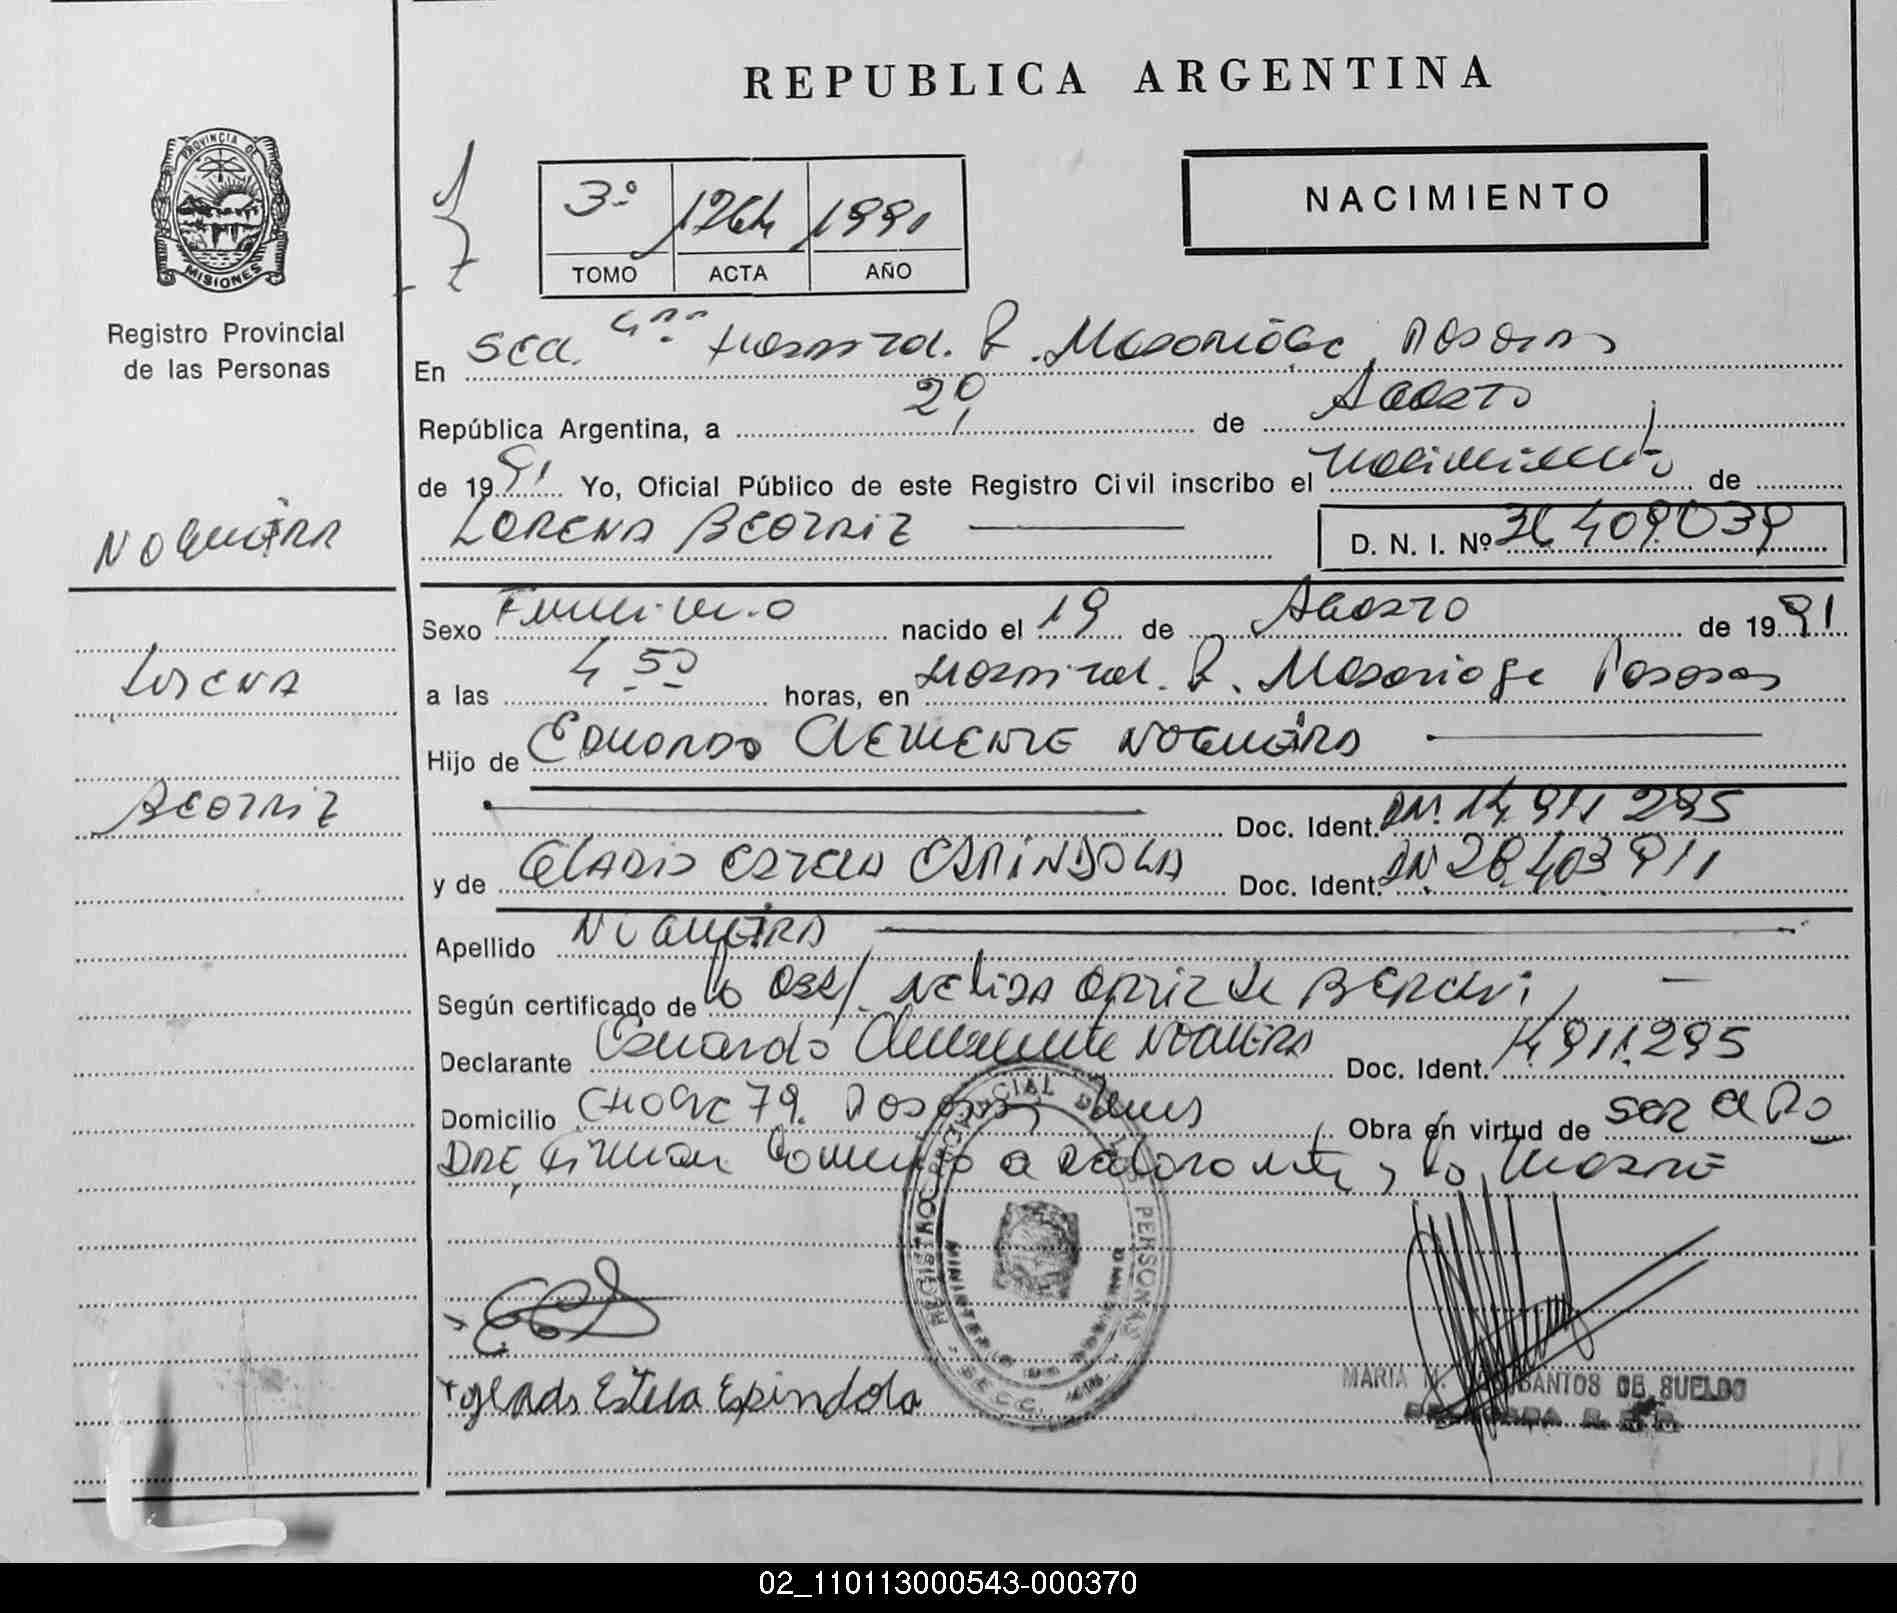 REPUBLICA ARGENTINA
PROVINCIA DE
MISIONES
Registro Provincial
de las Personas
3º 1264 1991
TOMO ACTA AÑO
NACIMIENTO
En Hospital R. Posadas
República Argentina, a 20 de Agosto
de 1991 Yo, Oficial Público de este Registro Civil inscribo el nacimiento de
LORENA BEATRIZ D. N. I. Nº 36.409.039
NOGUERA
LORENA
BEATRIZ
Sexo Femenino nacido el 19 de Agosto de 1991
a las 4 50 horas, en Hospital R. Posadas
Hijo de EDUARDO CLEMENTE NOGUERA
Doc. Ident. DNI 14.911.295
y de GLADIS ESTELA ESPINDOLA Doc. Ident. DNI 28.403.911
Apellido NOGUERA
Según certificado de la Obst. NELIDA ORTIZ de
Declarante Eduardo Clemente NOGUERA Doc. Ident. 14.911.295
Domicilio CHACRA 79. Posadas, Obra en virtud de SER EL PA
DRE Firman la MADRE
REGISTRO PROVINCIAL DE PERSONAS
SECC.
Glads Estela Espindola
MARIA SANTOS DE SUELDO
02_110113000543-000370